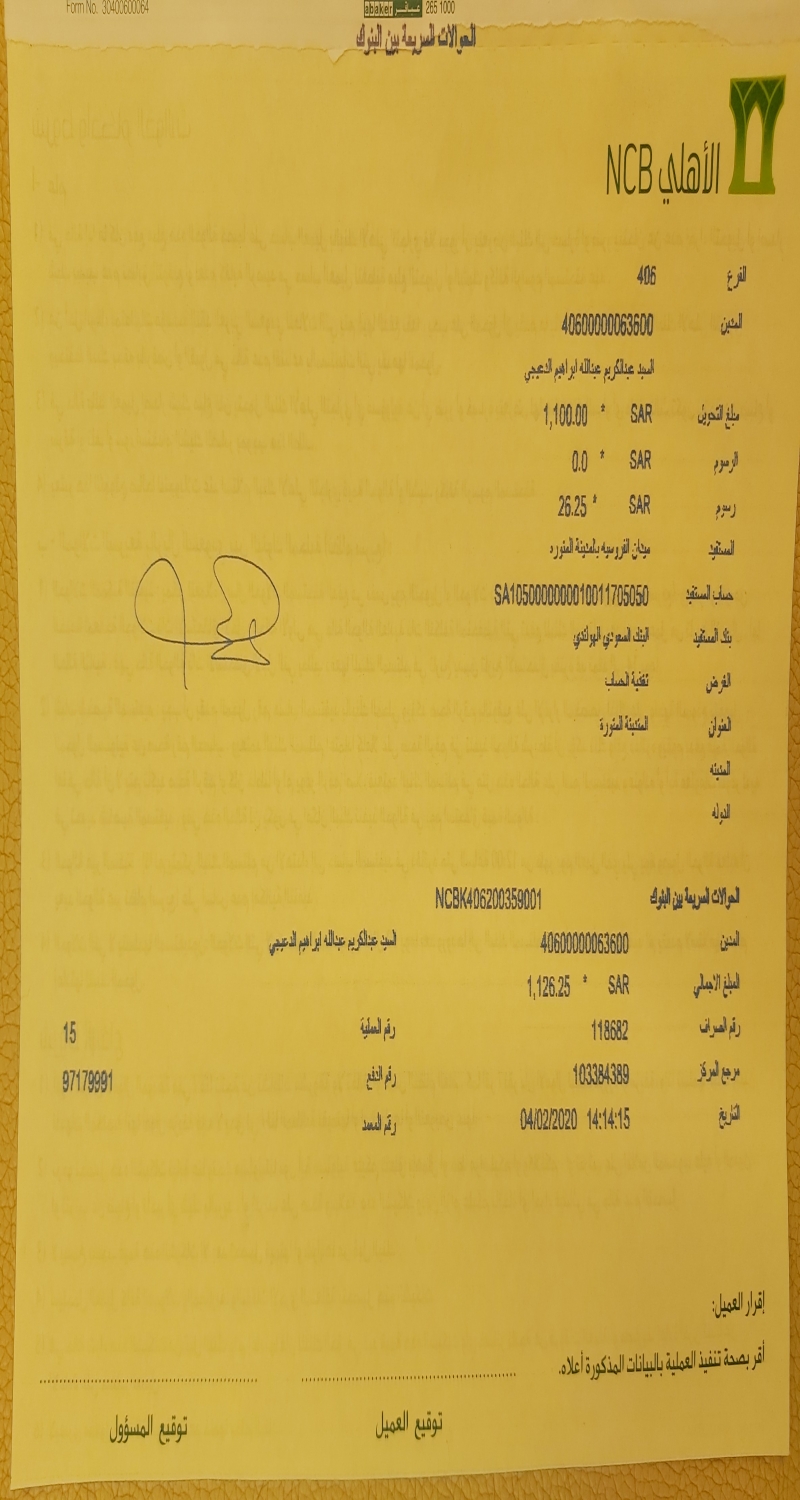 Form No. 30400600064 abaker عبـاكـر 265 1000
الحوالات السريعة بين البنوك
الأهلي NCB
الفرع 406
المدين 40600000063600
السيد عبدالكريم عبدالله ابراهيم الدعيجي
مبلغ التحويل SAR * 1,100.00
الرسوم SAR * 0.0
رسوم SAR * 26.25
المستفيد ميدان الفروسيه بالمدينة المنوره
حساب المستفيد SA1050000000010011705050
بنك المستفيد البنك السعودي الهولندي
الغرض تغذية الحساب
العنوان المدينة المنورة
المدينه
الدوله
الحوالات السريعة بين البنوك NCBK406200359001
المدين 40600000063600 السيد عبدالكريم عبدالله ابراهيم الدعيجي
المبلغ الاجمالي SAR * 1,126.25
رقم الصراف 118682 رقم العملية 15
مرجع المركز 103384389 رقم الدفع 97179991
التاريخ 04/02/2020 14:14:15 رقم المعمد
إقرار العميل:
أقر بصحة تنفيذ العملية بالبيانات المذكورة أعلاه.
توقيع العميل توقيع المسؤول